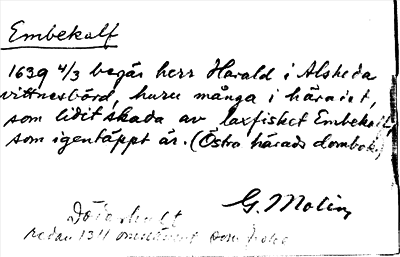 Embekalf
1639 4/3 begär herr Harald i Alsheda
vittnesbörd, huru många i häradet,
som lidit skada av laxfisket Embekalf,
som igentäppt är. (Östra härads dombok)
G. Molin
Döderhult
redan 1311